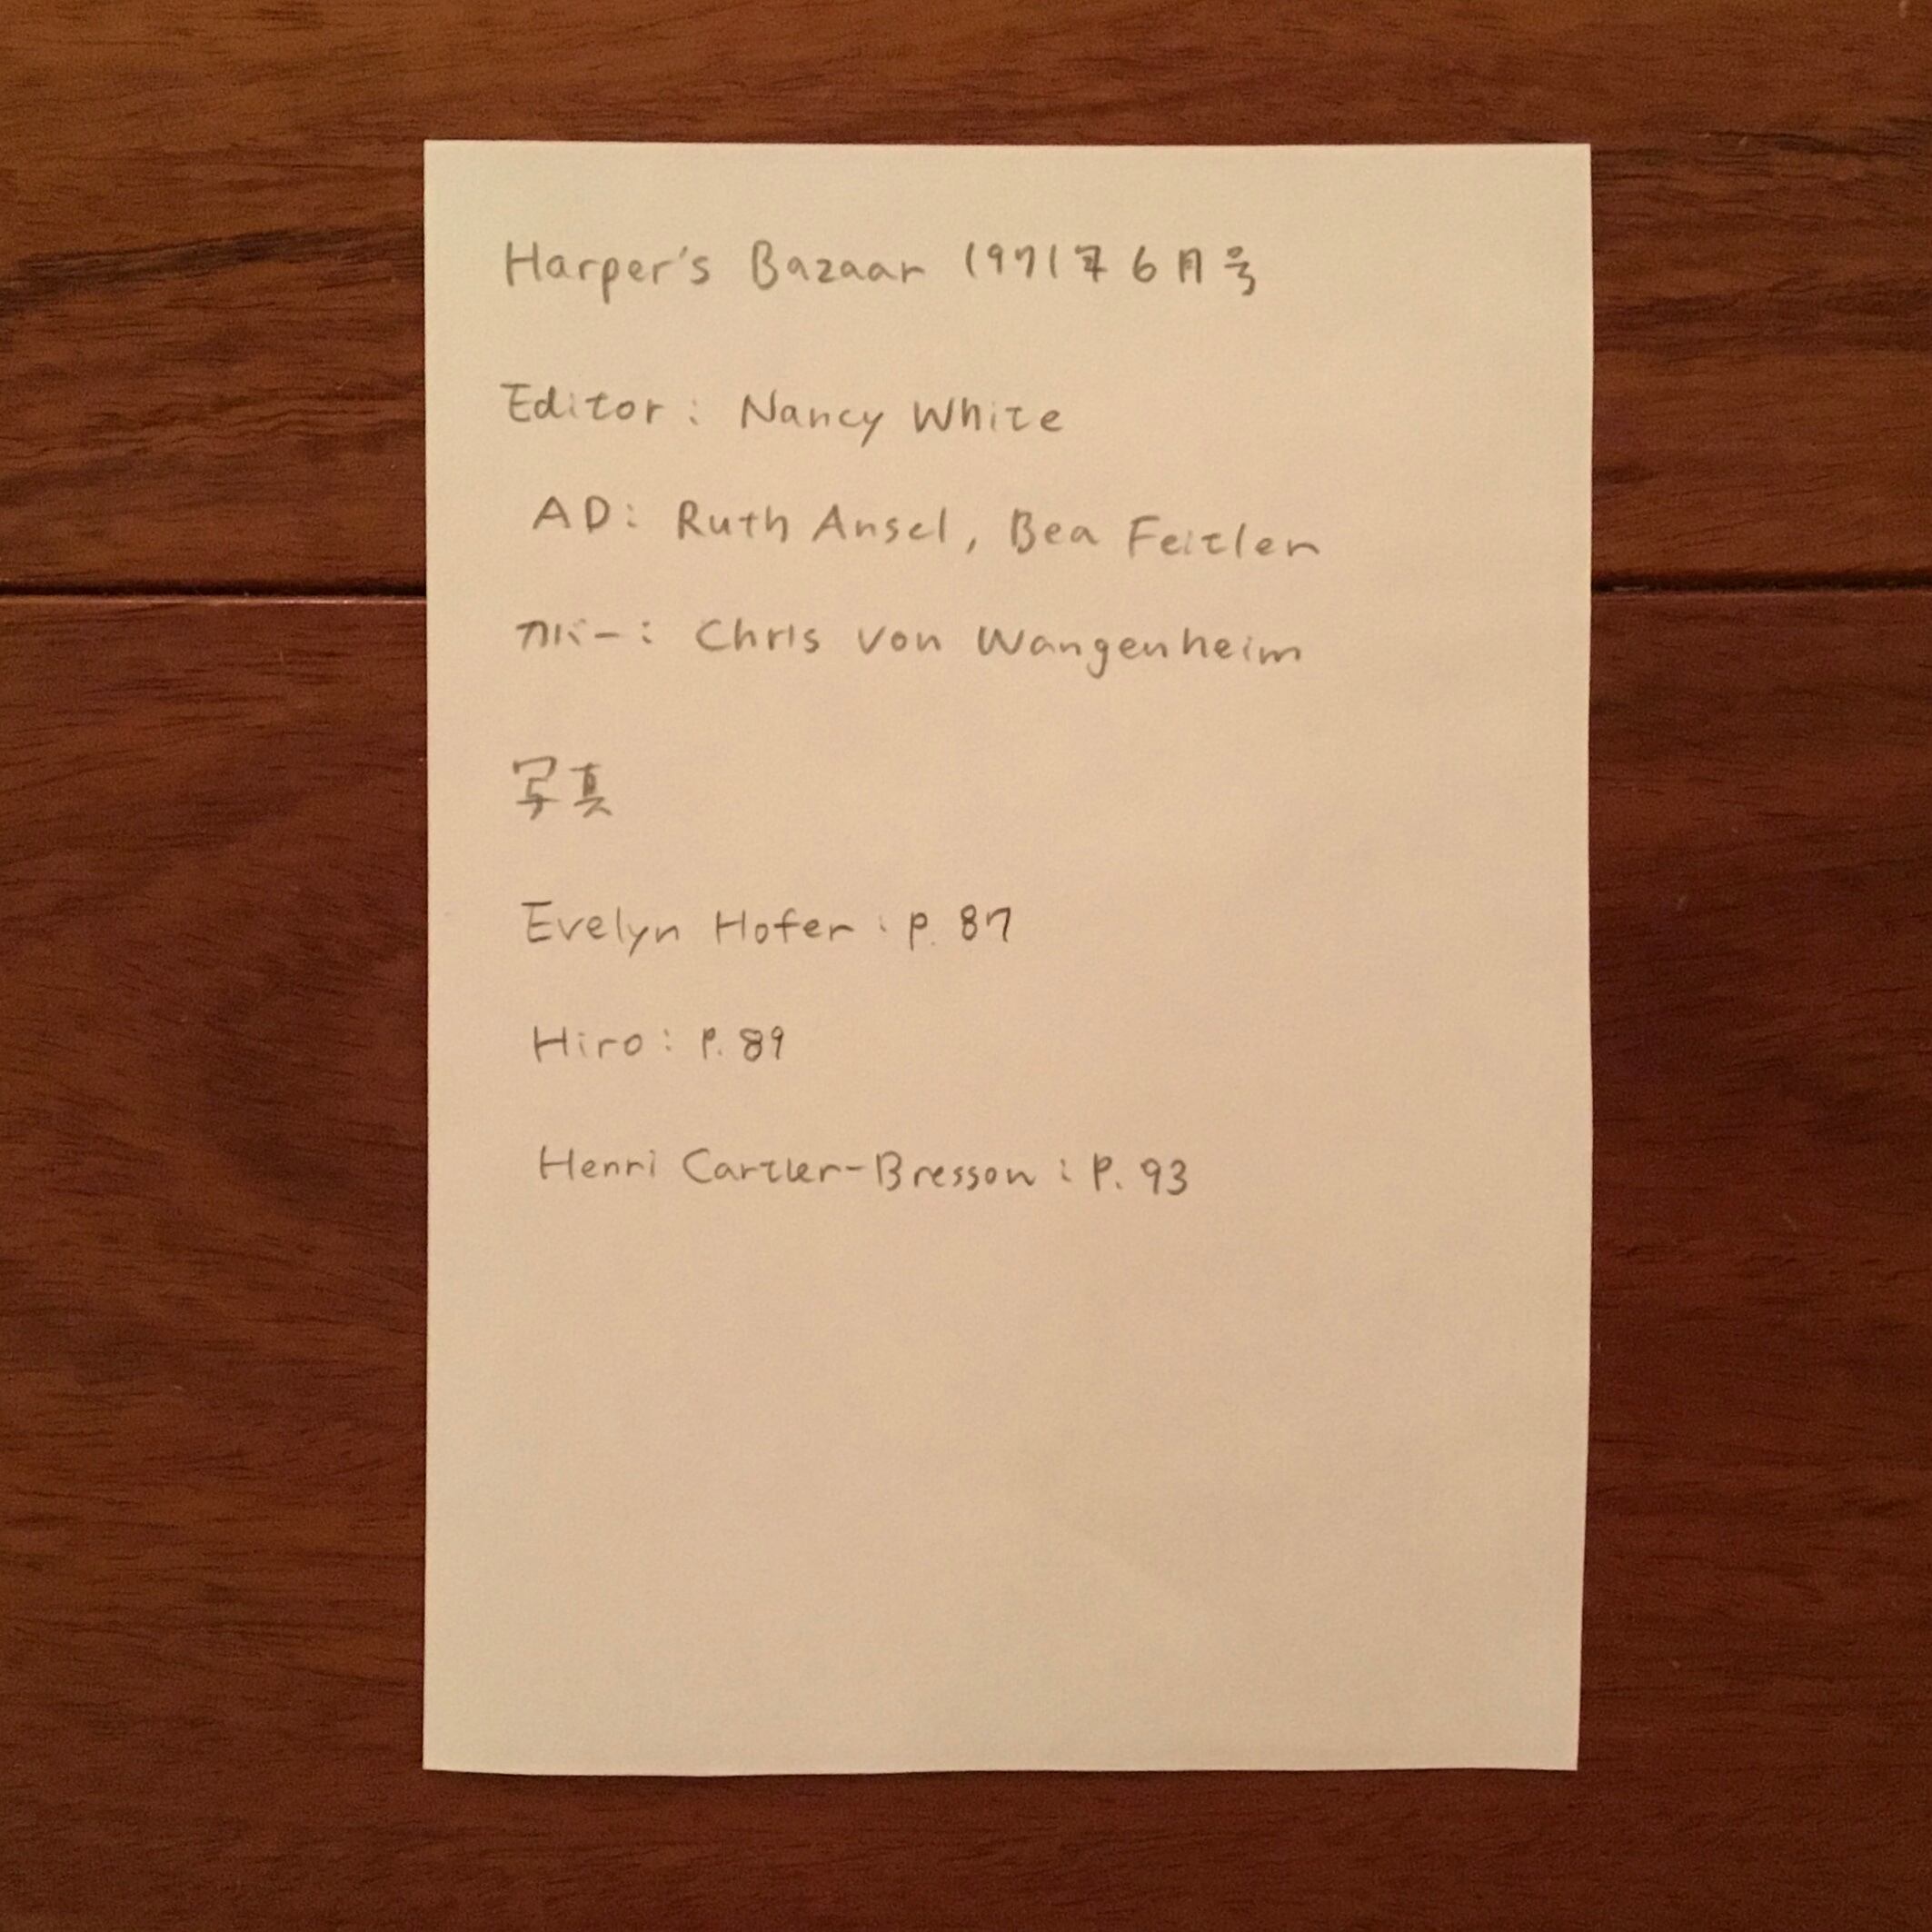 Harper's Bazaar 1971年6月号
Editor: Nancy White
AD: Ruth Ansel, Bea Feitler
カバー: Chris von Wangenheim
写真
Evelyn Hofer: p. 87
Hiro: P. 89
Henri Cartier-Bresson: P. 93